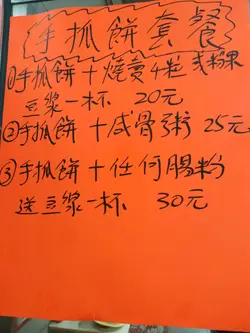 手抓餅套餐
①手抓餅+燒賣4粒或粉果
豆漿一杯 20元
②手抓餅+咸骨粥 25元
③手抓餅+任何腸粉
送豆漿一杯 30元